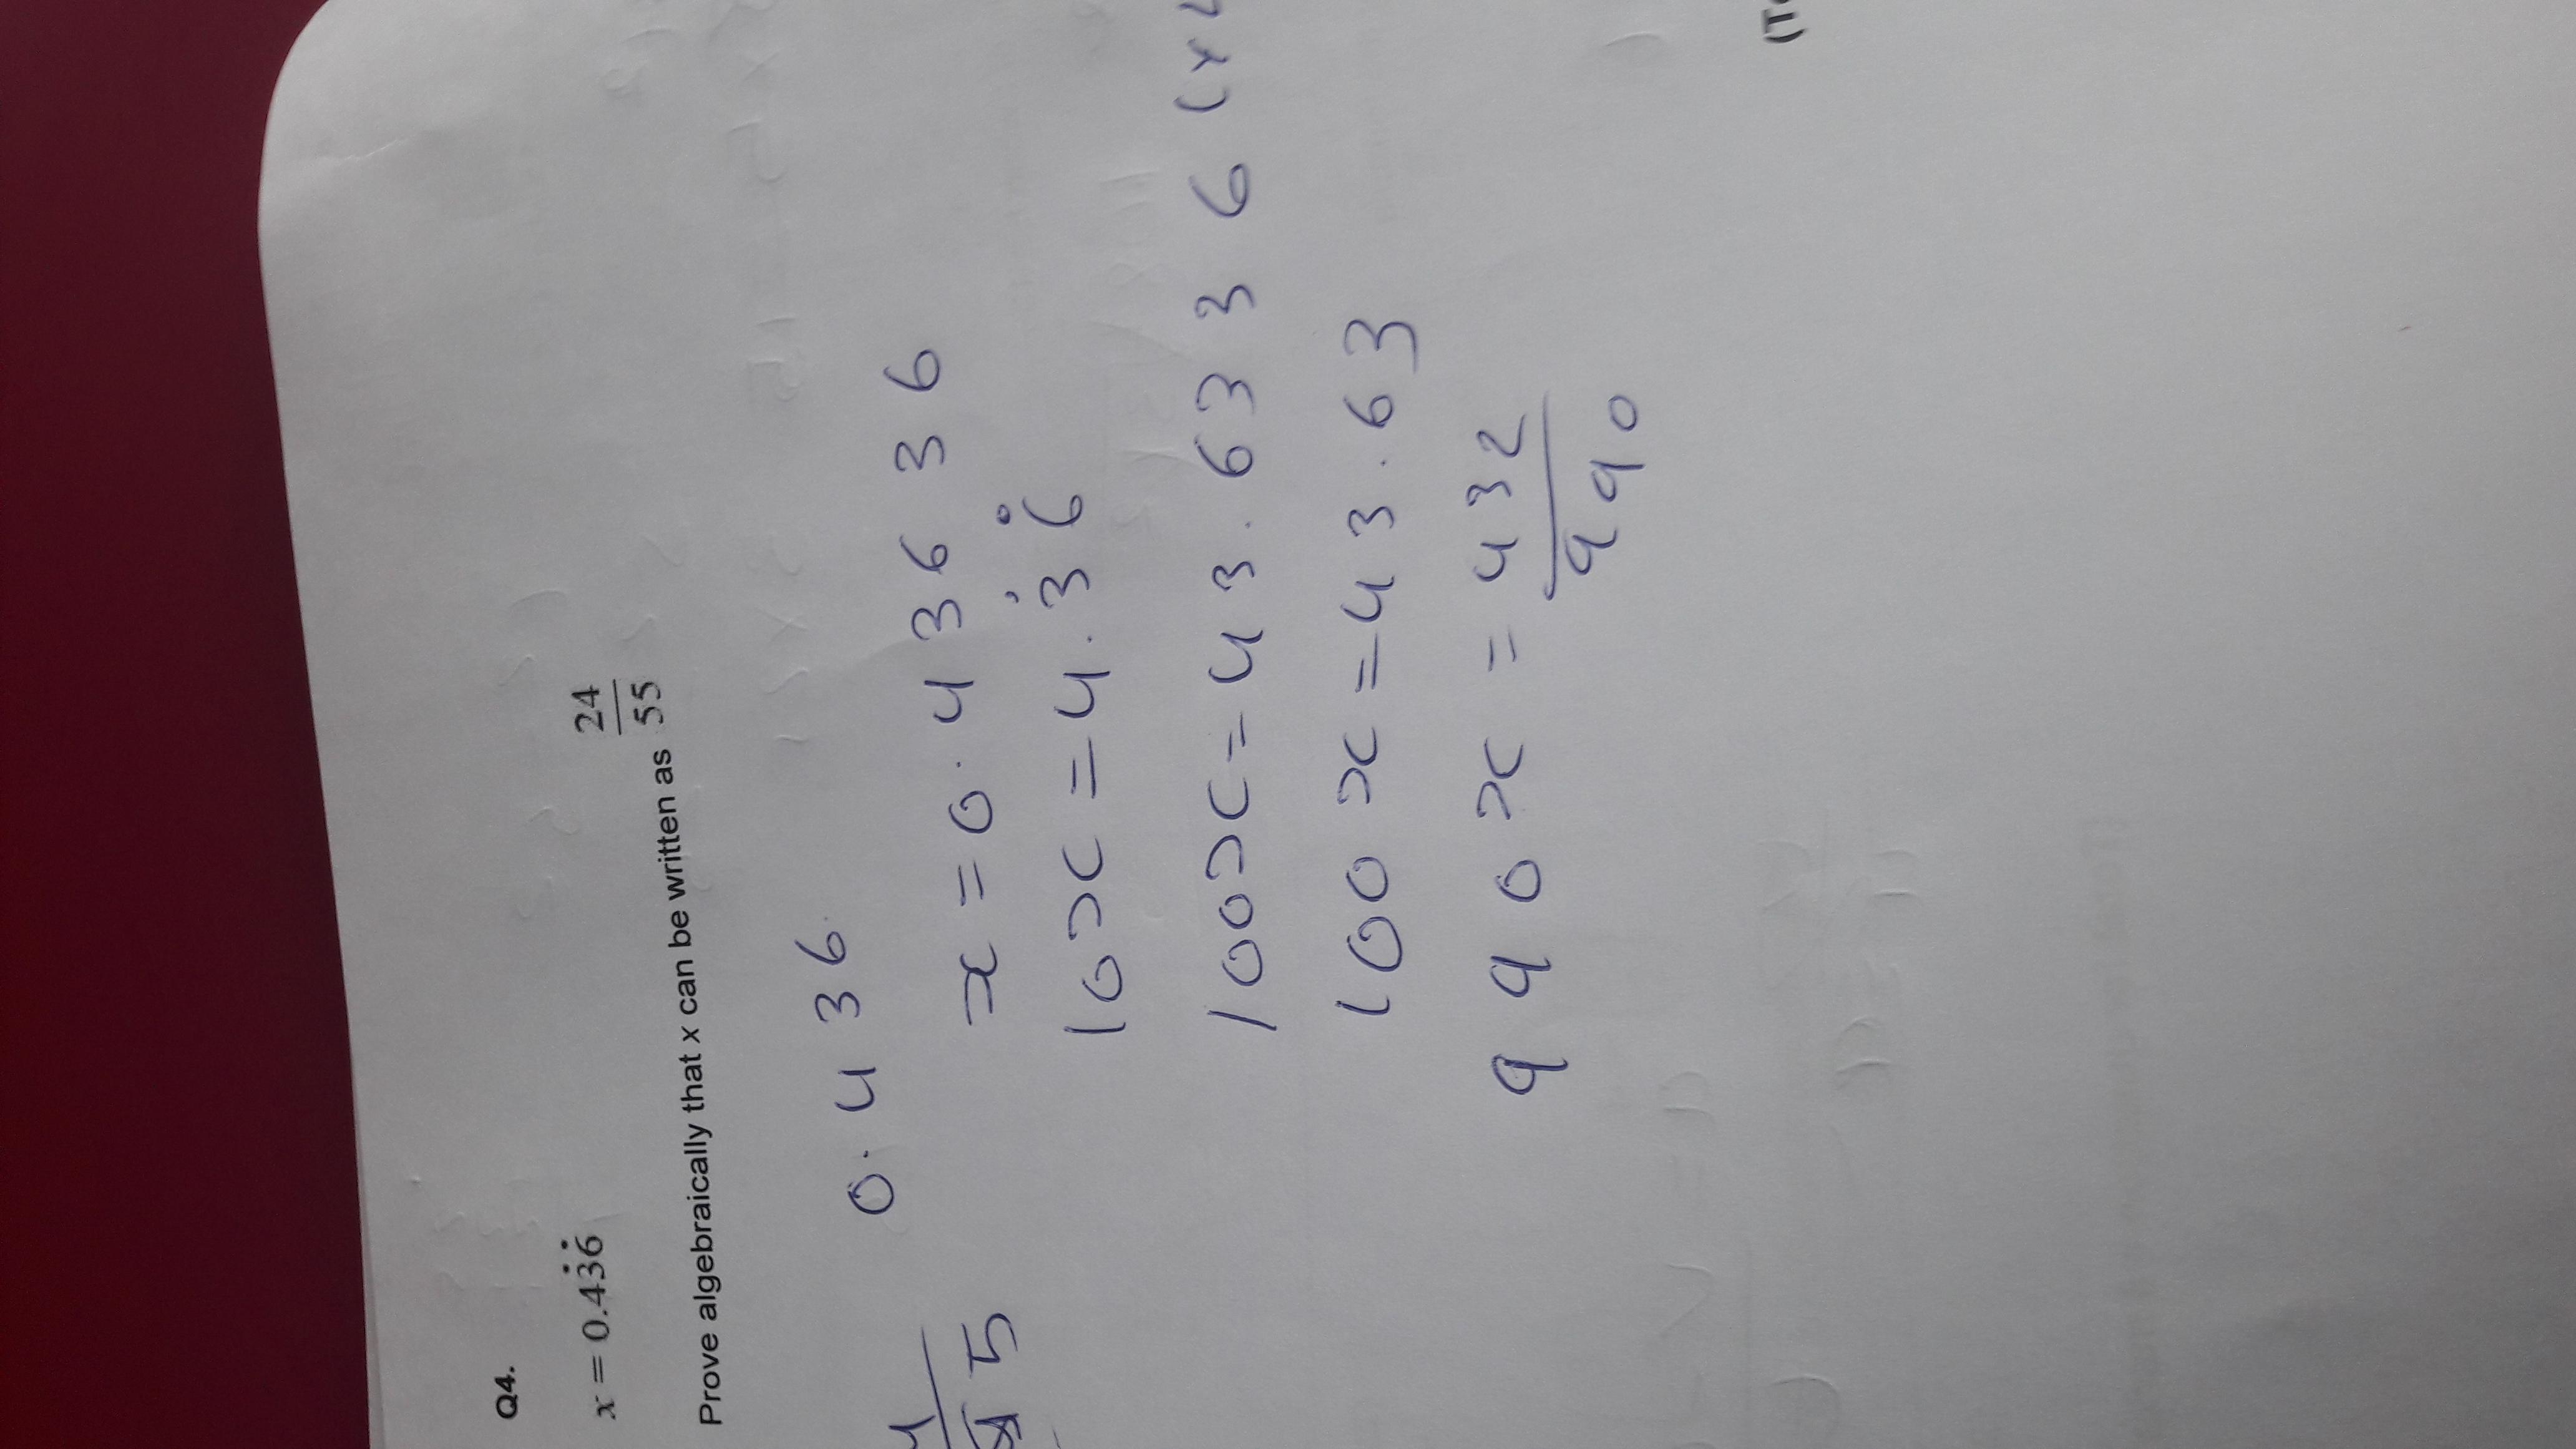 Q4.
x = 0.43̇6̇
Prove algebraically that x can be written as 24/55
0.436
5
x = 0.43636 36
10x = 4.3̇6̇
100x = 43.63 3 6 (x
100x = 43.63
990x = 432
990